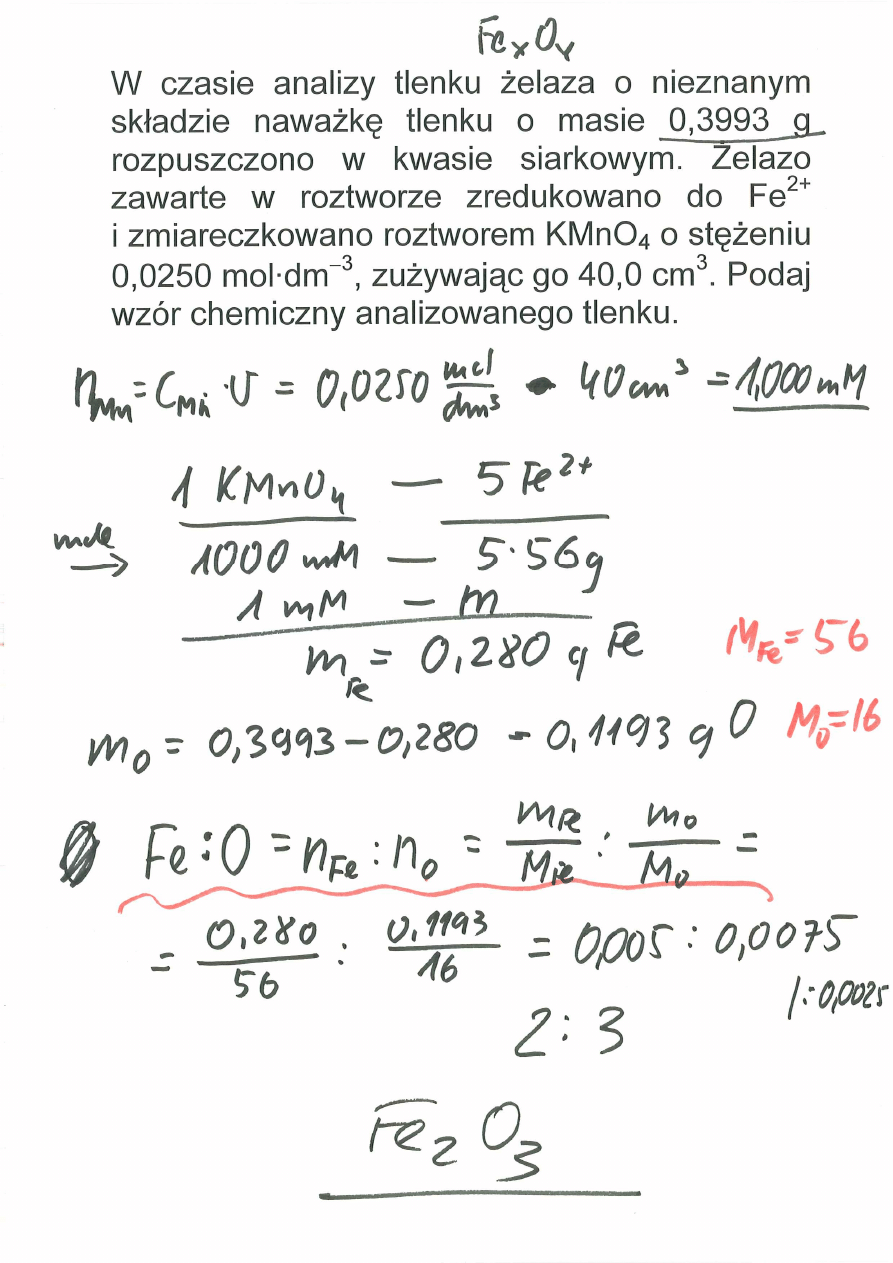 FexOy
W czasie analizy tlenku żelaza o nieznanym
składzie naważkę tlenku o masie 0,3993 g
rozpuszczono w kwasie siarkowym. Żelazo
zawarte w roztworze zredukowano do Fe²⁺
i zmiareczkowano roztworem KMnO₄ o stężeniu
0,0250 mol·dm⁻³, zużywając go 40,0 cm³. Podaj
wzór chemiczny analizowanego tlenku.
nMn = CMn · V = 0,0250 mol/dm³ · 40 cm³ = 1,000 mM
1 KMnO₄ — 5 Fe²⁺
mole → 1000 mM — 5·56g
1 mM — m
mFe = 0,280 g Fe MFe = 56
mO = 0,3993 – 0,280 = 0,1193 g O MO = 16
Fe : O = nFe : nO = mFe/MFe : mO/MO =
= 0,280/56 : 0,1193/16 = 0,005 : 0,0075 /: 0,0025
2 : 3
Fe₂O₃